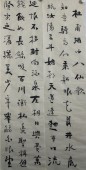 杜甫 八仙歌
知章騎馬似乘船眼花落井水底
眠汝陽三斗始朝天道逢麴車口流
涎恨不移封向酒泉左相日興費萬
錢飲如長鯨吸百川銜杯樂聖稱
宗之瀟灑美少年舉觴白眼望